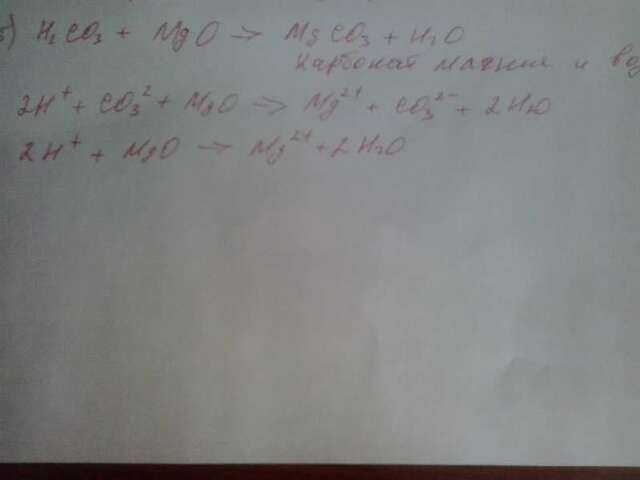 б) H₂CO₃ + MgO → MgCO₃ + H₂O
карбонат магния и
2H⁺ + CO₃² + MgO → Mg²⁺ + CO₃²⁻ + 2H₂O
2H⁺ + MgO → Mg²⁺ + 2H₂O